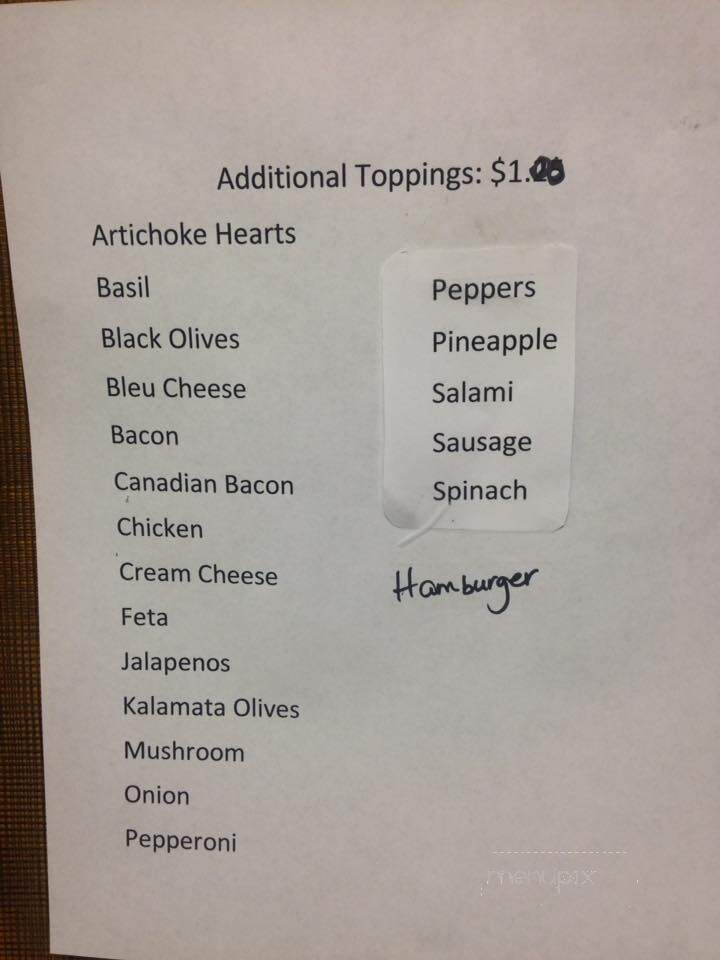 Additional Toppings: $1.00
Artichoke Hearts
Basil
Black Olives
Bleu Cheese
Bacon
Canadian Bacon
Chicken
Cream Cheese
Feta
Jalapenos
Kalamata Olives
Mushroom
Onion
Pepperoni
Peppers
Pineapple
Salami
Sausage
Spinach
Hamburger
menupix